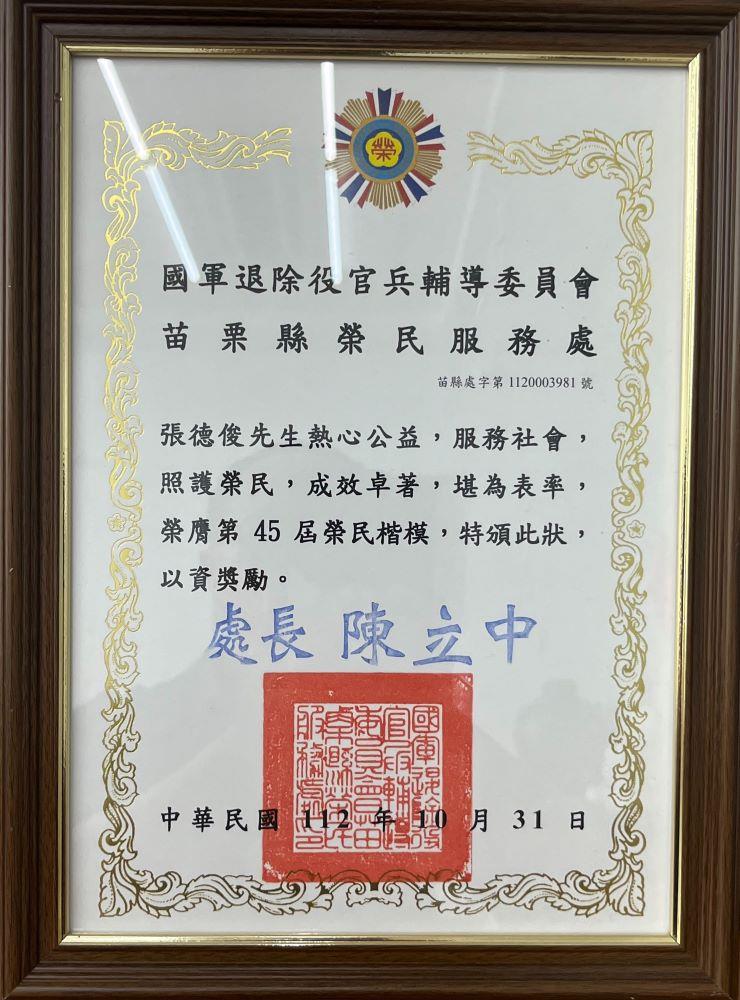 榮
國軍退除役官兵輔導委員會
苗栗縣榮民服務處
苗縣處字第 1120003981 號
張德俊先生熱心公益，服務社會，
照護榮民，成效卓著，堪為表率，
榮膺第 45 屆榮民楷模，特頒此狀，
以資獎勵。
處長 陳立中
中華民國 112 年 10 月 31 日